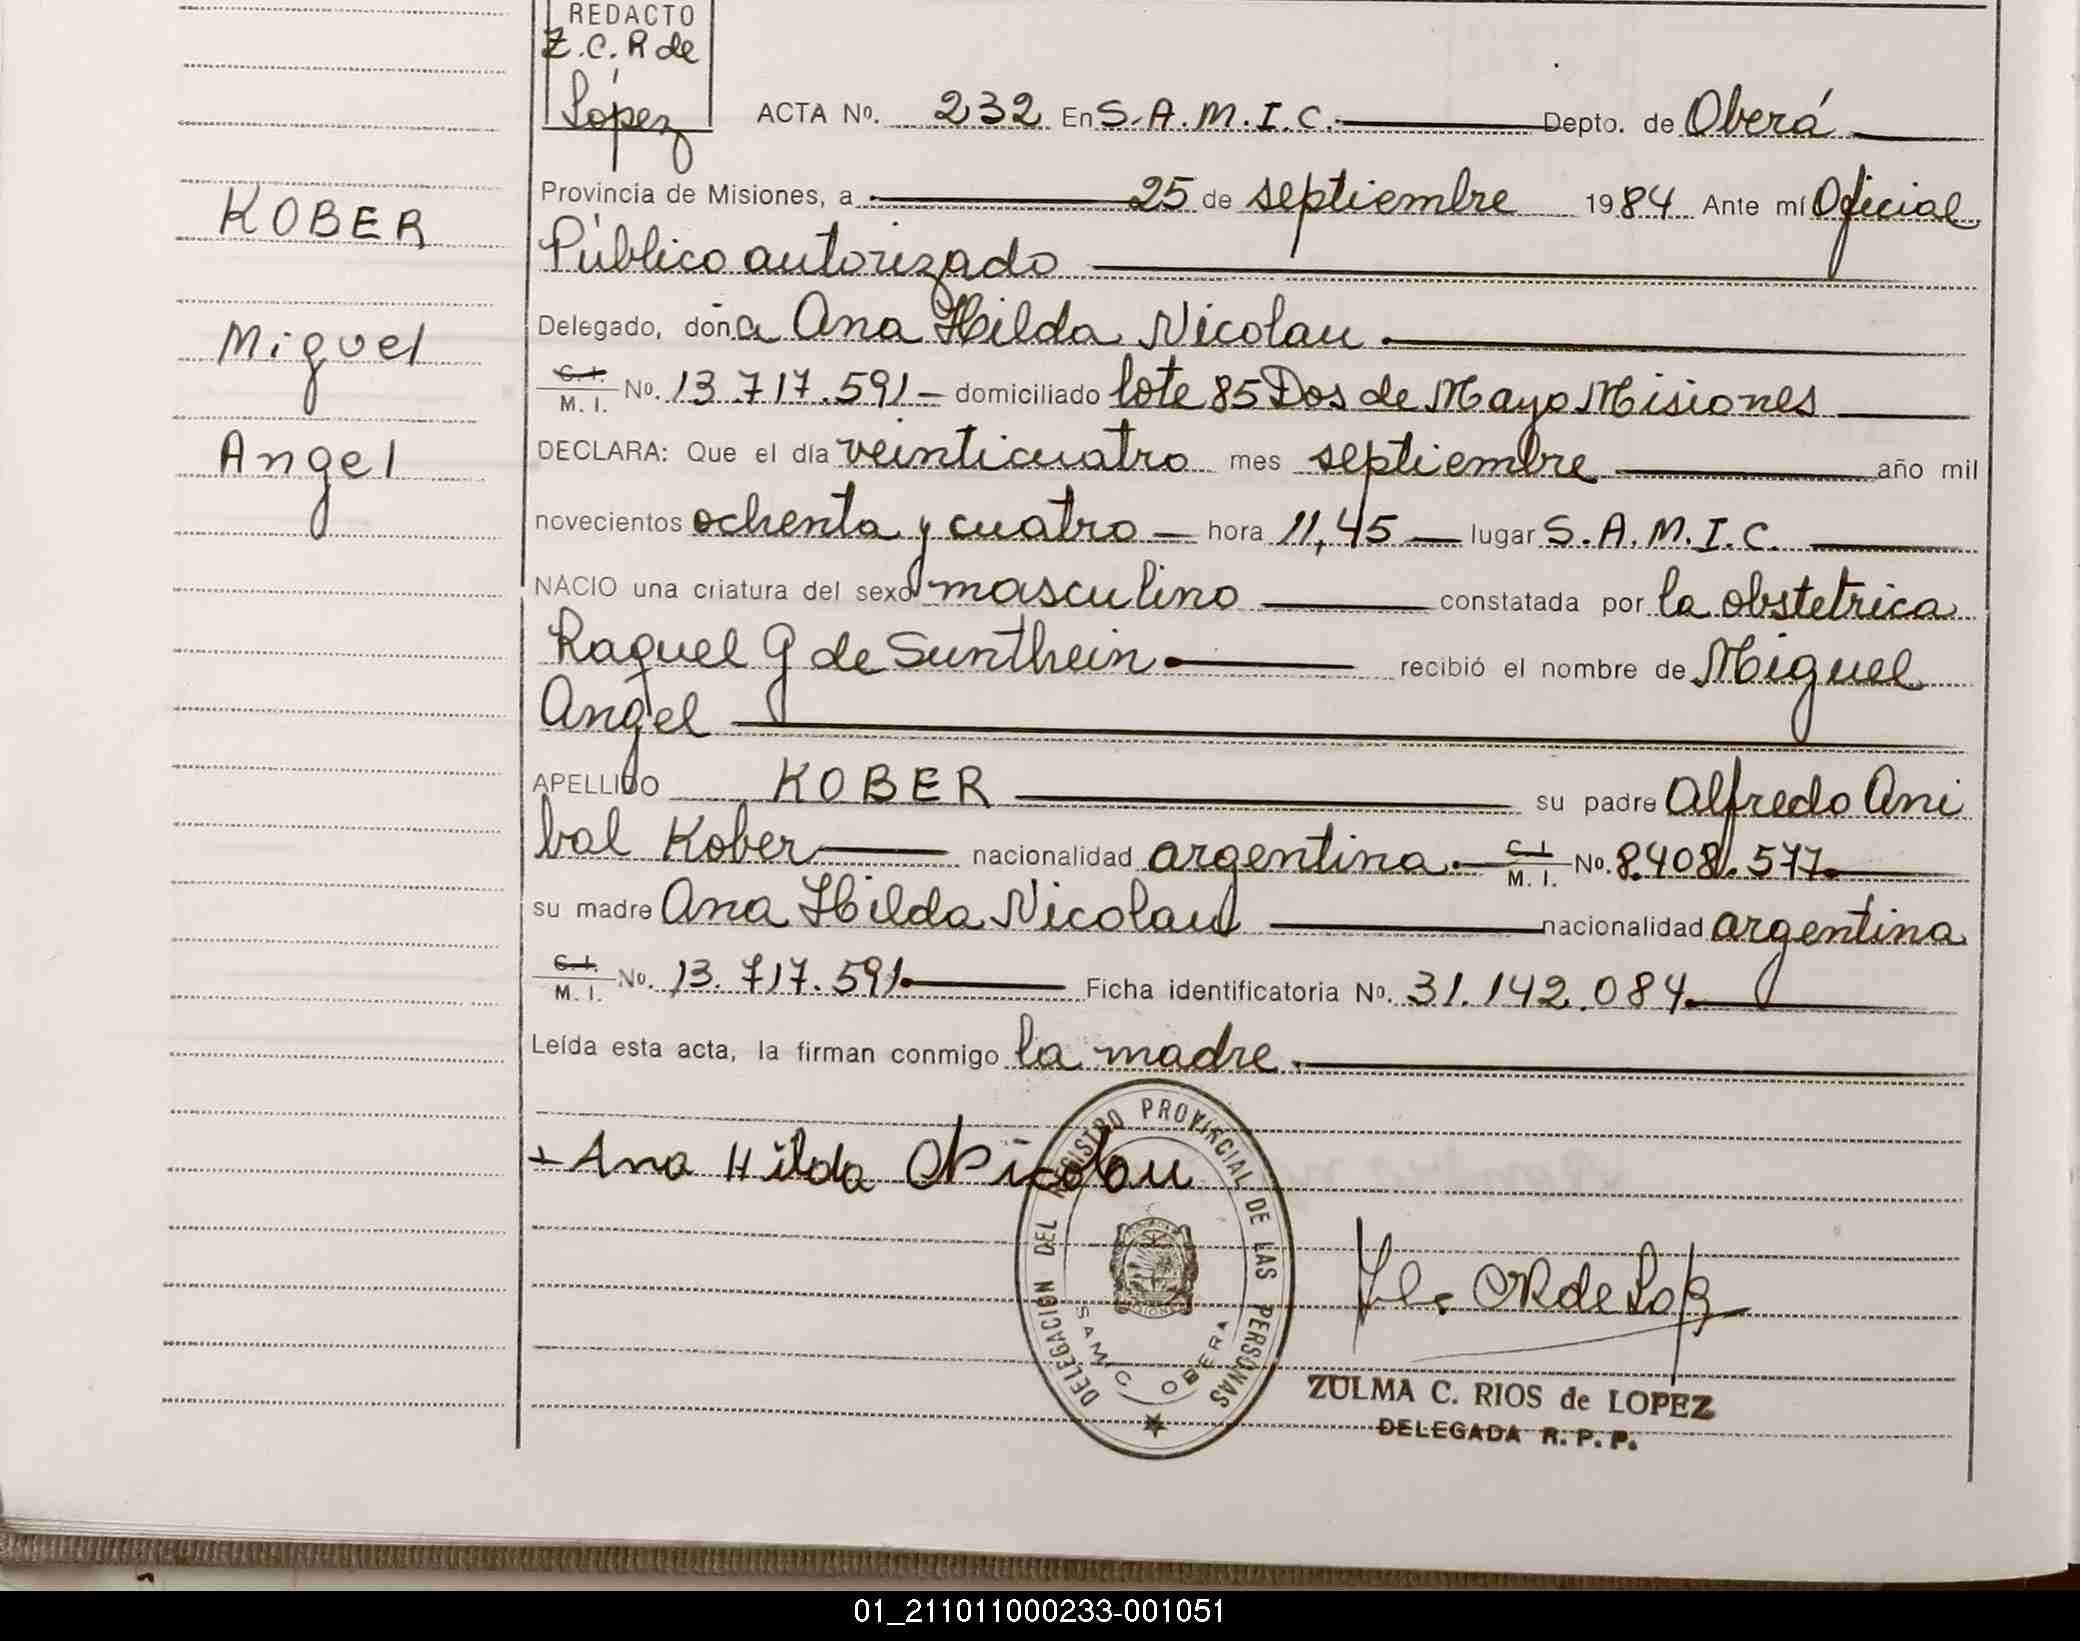 REDACTO
Z.C.R de
López
ACTA No. 232 En S.A.M.I.C. Depto. de Oberá
Provincia de Misiones, a 25 de septiembre 1984 Ante mí Oficial
Público autorizado
Delegado, don a Ana Hilda Nicolau
C.I. M.I. No. 13.717.591 domiciliado lote 85 Dos de Mayo Misiones
DECLARA: Que el día veinticuatro mes septiembre año mil
novecientos ochenta y cuatro hora 11,45 lugar S.A.M.I.C.
NACIO una criatura del sexo masculino constatada por la obstetrica
Raquel G de Sunthein recibió el nombre de Miguel
Angel
APELLIDO KOBER su padre Alfredo Ani
bal Kober nacionalidad argentina C.I. M.I. No. 8.408.577
su madre Ana Hilda Nicolau nacionalidad argentina
C.I. M.I. No. 13.717.591 Ficha identificatoria No. 31.142.084
Leída esta acta, la firman conmigo la madre.
KOBER
Miguel
Angel
Ana Hilda Nicolau
DELEGACION DEL REGISTRO PROVINCIAL DE LAS PERSONAS
SAMIC OBERA
ZULMA C. RIOS de LOPEZ
DELEGADA R.P.P.
01_211011000233-001051